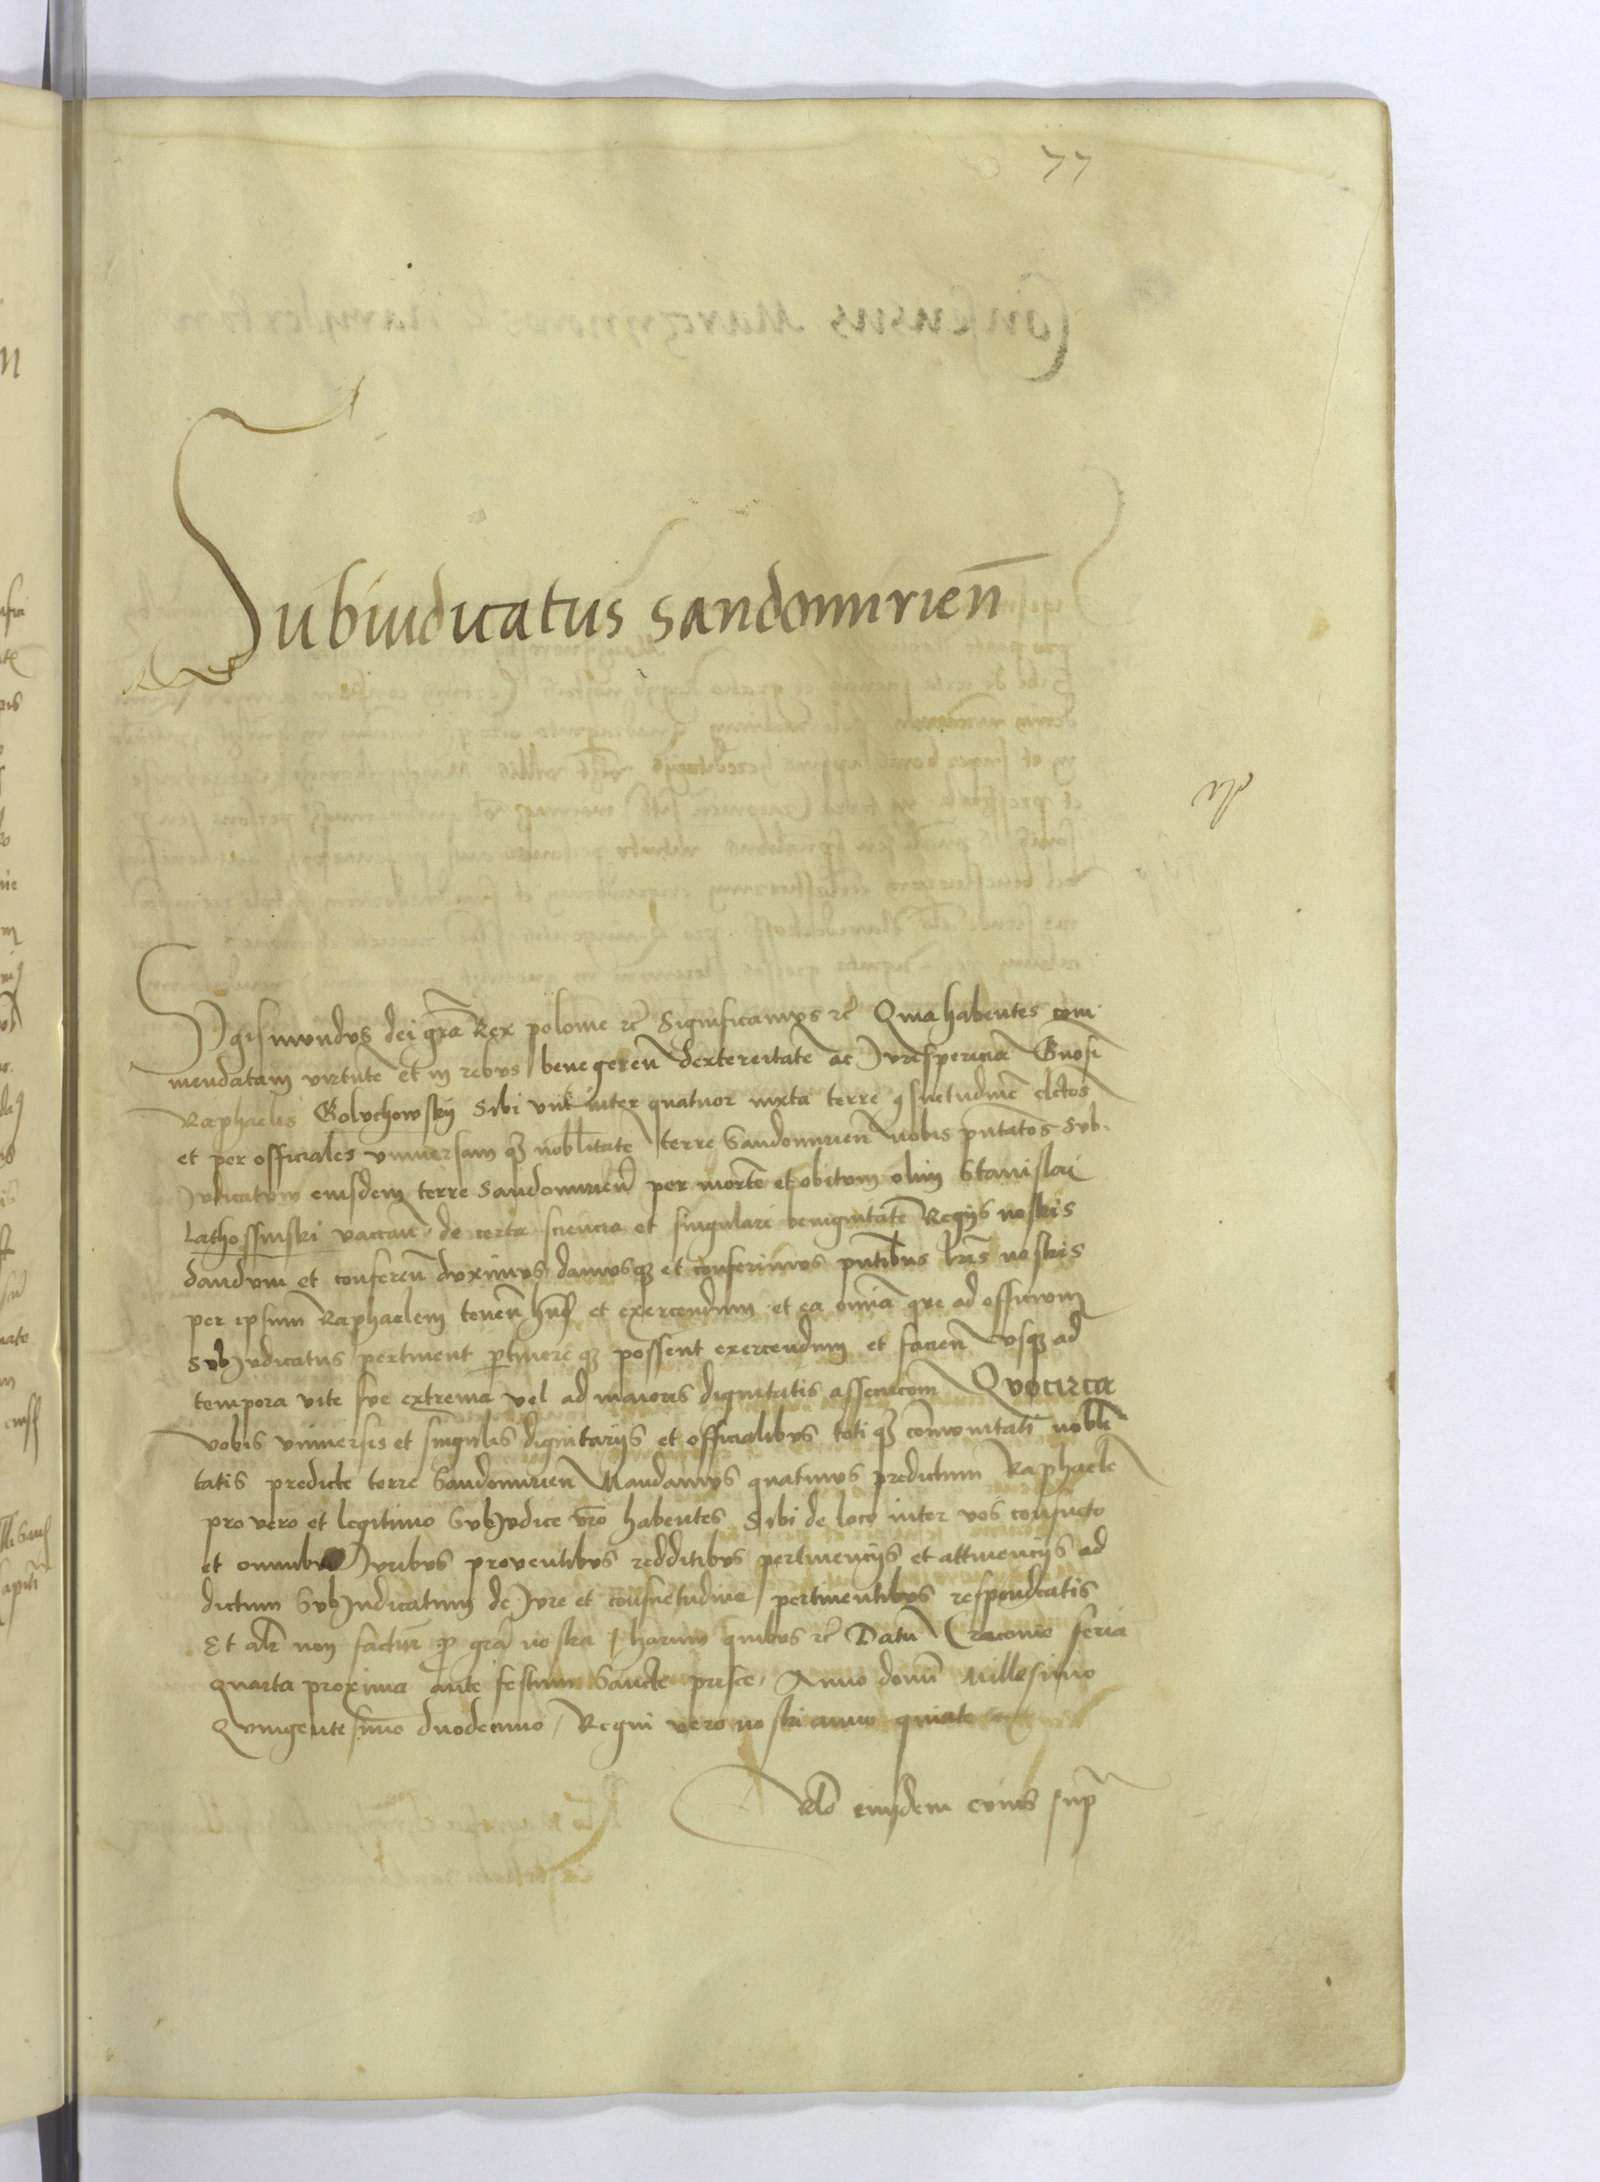 77
Subiudicatus Sandomirien̄
Sigismundus dei gr̄a Rex polonie rc̄ Significamus rc̄ Quia habentes com
mendatam virtutē et in rebus bene geren̄ dextereitatē ac Jurisperitiā Gn̄osi
Raphaelis Goluchowsky Sibi vnī inter quatuor iuxta terre ꝯsuetudinē elctos
et per officiales vniuersam qꝫ nobl̄itatē terre Sandomirien̄ nobis pn̄tatos Sub
Judicatum eiusdem terre Sandomirien̄ per mortē et obitum olim Stanislai
Lathossinski vaccan̄ de certa sciencia et singulari benignitatē Regijs nostris
dandum et conferen̄ duximus damusqꝫ et conferimus pn̄tibus lr̄is nostris
per ipsum Raphaelem tenen̄ hn̄d et exercendum et ea omīa que ad officium
SubJudicatus pertinent ꝑtinere qꝫ possent exercendum et facien̄ vsqꝫ ad
tempora vite sue extrema vel ad maioris dignitatis assecucōm Quocirca
vobis vniuersis et singulis dignitarijs et officialibus toti qꝫ com̄unitati nobl̄i
tatis predicte terre Sandomirien̄ Mandamus quatinus predictum Raphaelē
pro vero et legitimo SubJudice vr̄o habentes Sibi de loco inter vos consueto
et omnibus Juribus prouentibus redditibus pertinencijs et attinencijs ad
dictum SubJudicatum de Jure et consuetudine pertinentibus respondeatis
Et alr̄ non factur̄ ꝓ gr̄a nostra harum quibus rc̄ Datū Cracouie feria
quarta proxima ante festum Sancte prisce Anno domī Millesimo
Quingentesimo duodecimo Regni vero nostri anno
Rlō eiusdem cuius sup̄